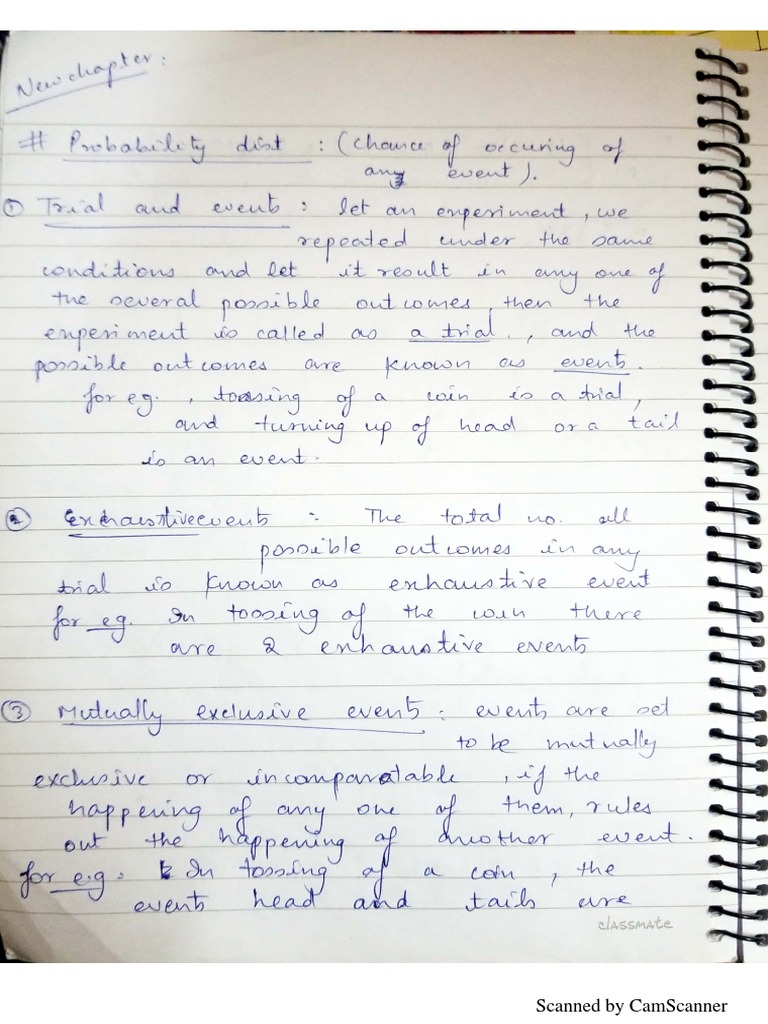 New chapter :
# Probability dist : (chance of occuring of
any event).
① Trial and events : let an experiment, we
repeated under the same
conditions and let it result in any one of
the several possible outcomes, then the
experiment is called as a trial., and the
possible outcomes are known as events.
for eg., tossing of a coin is a trial,
and turning up of head or a tail
is an event.
② Exhaustive events : The total no. all
possible outcomes in any
trial is known as exhaustive event
for eg. In tossing of the coin there
are 2 exhaustive events
③ Mutually exclusive events : events are set
to be mutually
exclusive or incomparatable, if the
happening of any one of them, rules
out the happening of another event.
for e.g : In tossing of a coin, the
events head and tails are
classmate
Scanned by CamScanner